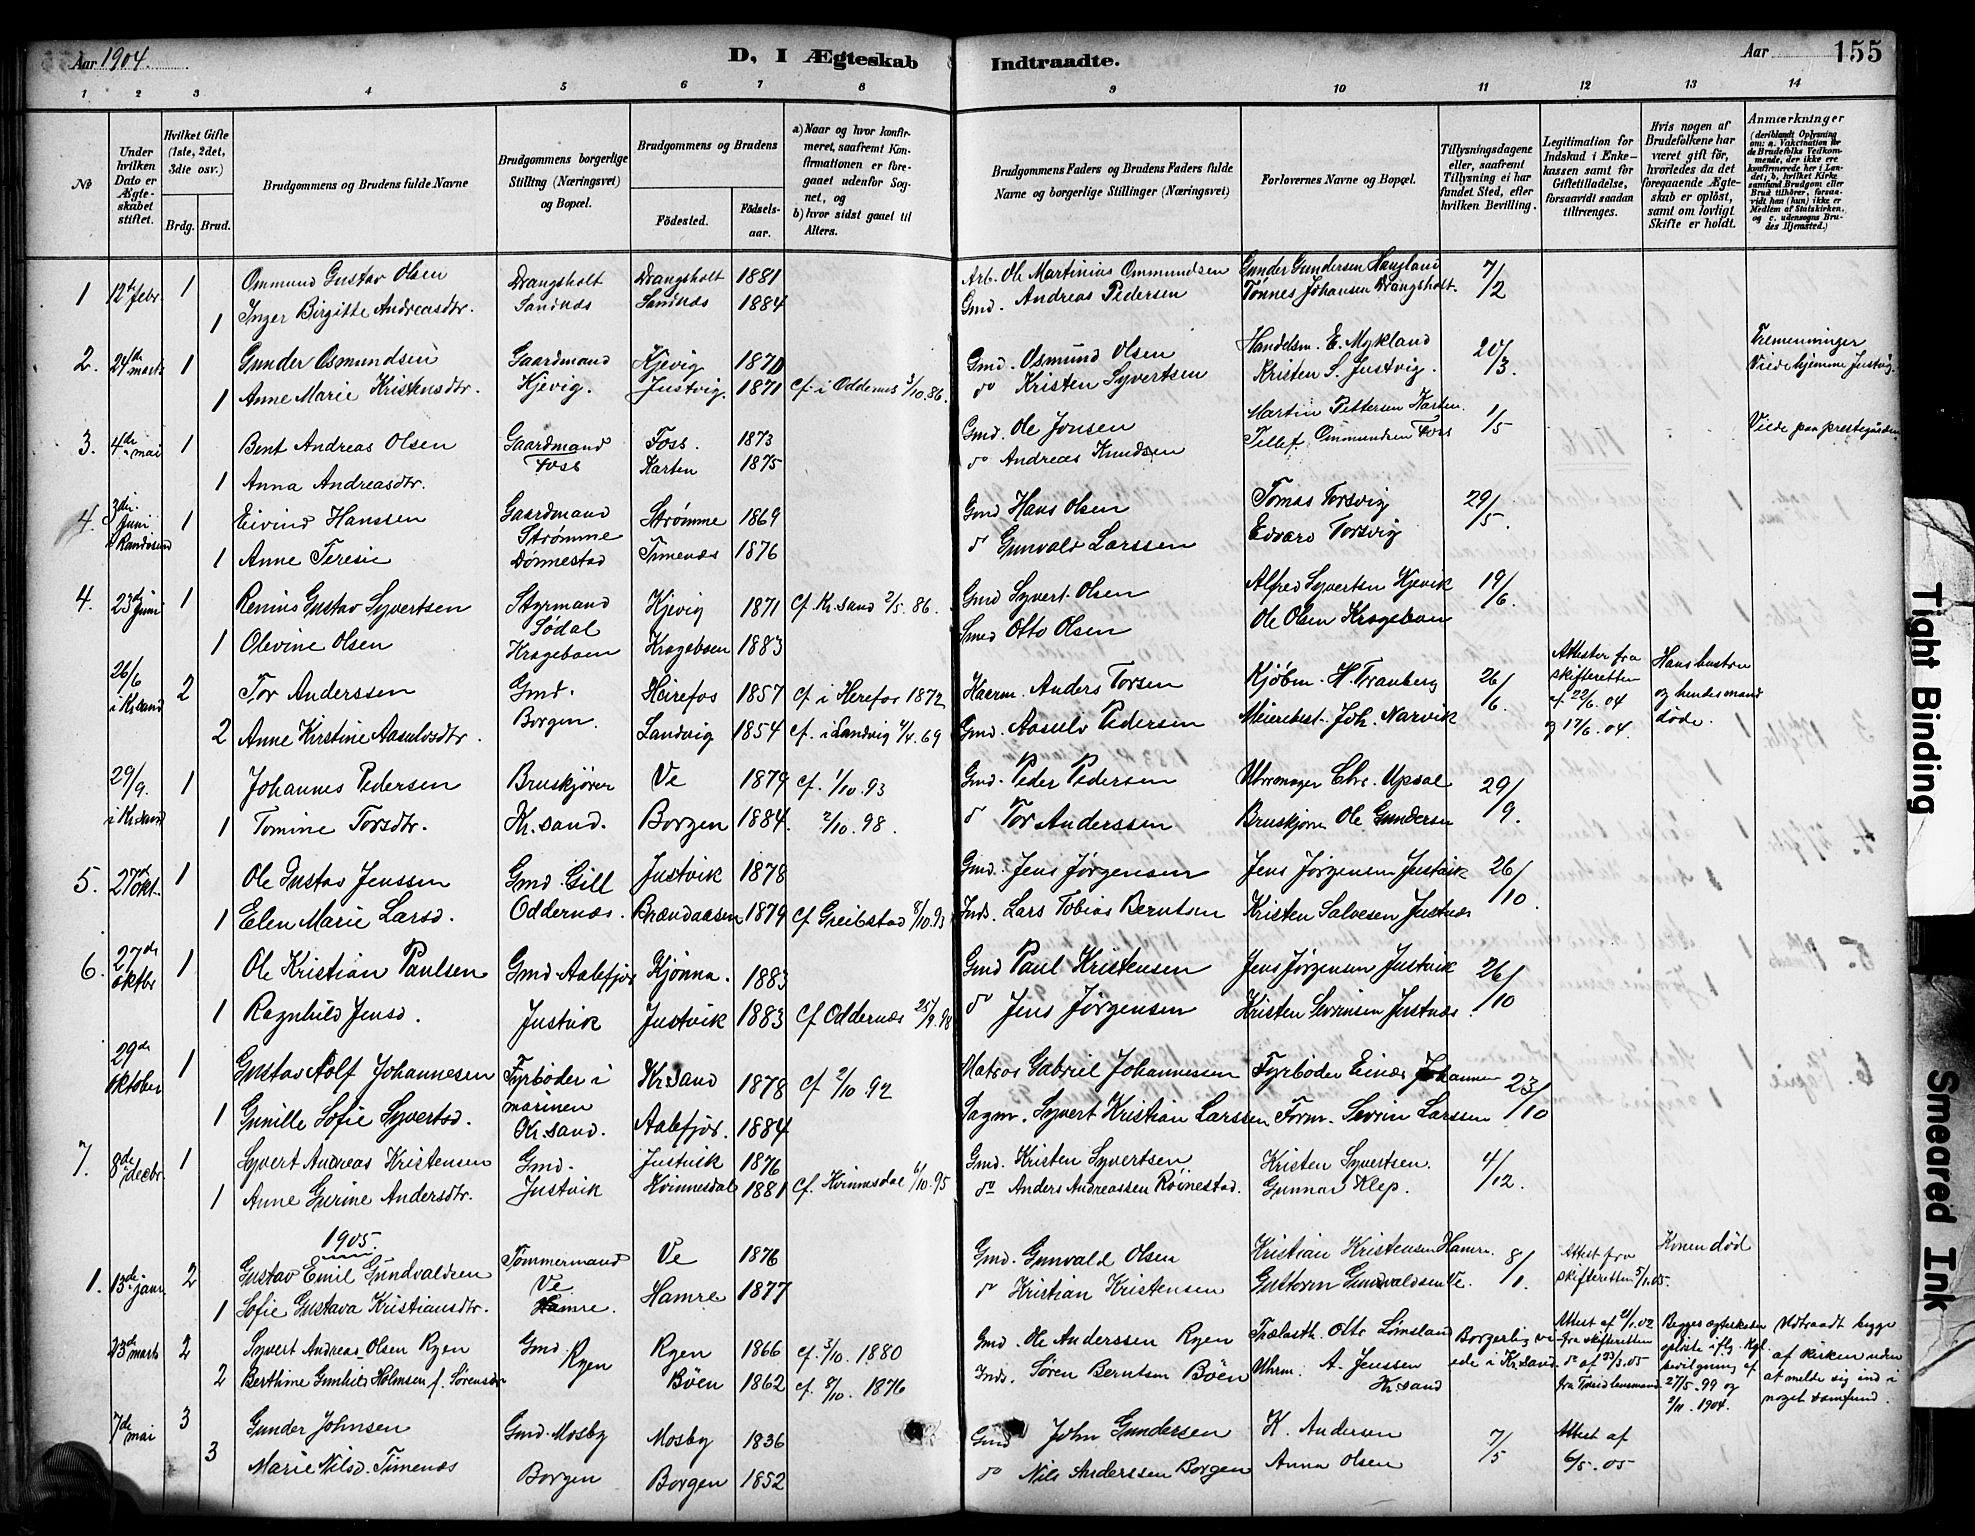 Aar 1904.
D, I Ægteskab Indtraadte.
Aar
155
1 2 3 4 5 6 7 8 9 10 11 12 13 14
No
Under hvilken Dato er Ægteskabet stiftet.
Hvilket Gifte (1ste, 2det, 3die osv.)
Brdg. Brud.
Brudgommens og Brudens fulde Navne
Brudgommens borgerlige Stilling (Næringsvei) og Bopæl.
Brudgommens og Brudens
Fødested.
Fødselsaar.
a) Naar og hvor konfirmeret, saafremt Konfirmationen er foregaaet udenfor Sognet, og
b) hvor sidst gaaet til Alters.
Brudgommens Faders og Brudens Faders fulde Navne og borgerlige Stillinger (Næringsvei)
Forlovernes Navne og Bopæl.
Tillysningsdagene eller, saafremt Tillysning ei har fundet Sted, efter hvilken Bevilling.
Legitimation for Indskud i Enkekassen samt for Giftetilladelse, forsaavidt saadan tiltrænges.
Hvis nogen af Brudefolkene har været gift før, hvorledes da det foregaaende Ægteskab er opløst, samt om lovligt Skifte er holdt.
Anmærkninger
(deriblandt Oplysning om: a. Vakcination for de Brudefolks Vedkommende, der ikke ere konfirmerede her i Landet, b. hvilket Kirkesamfund Brudgom eller Brud tilhører, forsaavidt han (hun) ikke er Medlem af Statskirken, og c. udensogns Brudes Hjemsted.)
1 12te febr. 1 Ommund Gustav Olsen Drangsholt Drangsholt 1881 Arb. Ole Martinius Ommundsen Gunder Gundersen Haugland 7/2
1 Inger Birgitte Andreasdtr. Sandnæs Sandnæs 1884 Gmd. Andreas Pedersen Tønnes Johansen Drangsholt.
2. 24de marts 1 Gunder Osmundsen Gaardmand Kjevig 1870 Gmd. Osmund Olsen Handelsm. E. Mykland 20/3 Tremenninger
1 Anne Marie Kristensdtr. Kjevig. Justvig. 1871 Cf. i Oddernes 3/10.86. do Kristen Syvertsen Kristen S. Justvig. Viede hjemme Justvig.
3. 4de mai 1 Bent Andreas Olsen Gaardmand Foss. 1873 Gmd. Ole Jonsen Martin Pettersen Karten. 1/5 Viede paa prestegården
1 Anna Andreasdtr. Foss Karten 1875 do Andreas Knudsen Tellef Ommundsen Foss
4. 3die Juni i Randøsund 1 Eivind Hanssen Gaardmand Strømme Strømme 1869 Gmd Hans Olsen Tomas Torsvig 29/5.
1 Anne Teresie Dønnestad Timenæs 1876 do Gunvald Larssen Edvard Torsvig
4. 23de juni 1 Renius Gustav Syvertsen Styrmand Sødal Kjevig 1871 Cf. Kr.sand 2/5. 86. Gmd Syvert Olsen Alfred Syvertsen Kjevik 19/6.
1 Olevine Olsen Krageboen Krageboen 1883 Smed Otto Olsen Ole Olsen Krageboen
26/6 i Kr.sand 2 Tor Anderssen Gmd. Heirefos 1857 Cf. i Herefos 1872 Kaarm. Anders Torsen Kjøbm. H. Tranberg 26/6. Attester fra skifteretten af 22/6. 04 Hans hustru og hendes mand
2 Anne Kirstine Aasulvsdtr. Borgen. Landvig 1854 Cf. i Landvig 4/4. 69 Gmd. Aasulv Pedersen Meieribest. Joh. Narvik og 17/6. 04. døde.
29/9. i Kr.sand 1 Johannes Pedersen Bruskjører Ve 1879 Cf. 1/10. 93 Gmd. Peder Pedersen Uhrmager Chr. Upsal 29/9.
1 Tomine Torsdtr. Kr.sand. Borgen 1884. 2/10. 98. do Tor Anderssen Bruskjører Ole Gundersen
5. 27de okt. 1 Ole Gustav Jenssen Gmd. Gill Justvik 1878 Gmd. Jens Jørgensen Jens Jørgensen Justvik 26/10.
1 Elen Marie Larsd. Oddernæs. Brændaasen 1879 Cf. Greibstad 8/10. 93 Inds. Lars Tobias Berntsen Kristen Salvesen Justnæs
6. 27de oktbr 1 Ole Kristian Paulsen Gmd Aalefjær Kjønna. 1883 Gmd Paul Kristensen Jens Jørgensen Justvik 26/10
1 Ragnhild Jensd. Justvik Justvik 1883 Cf Oddernæs 25/9. 98 do Jens Jørgensen Kristen Severinsen Justnæs.
29de oktober 1 Gustav Adolf Johannesen Fyrbøder i marinen Kr.sand 1878 Cf 2/10. 92 Matros Gabriel Johannessen Fyrbøder Einar Johannesen 23/10
1 Gunille Sofie Syvertsd. Kr.sand. Aalefjær. 1884 Sagm. Syvert Kristian Larssen Form. Severin Larssen
7. 8de decbr. 1 Syvert Andreas Kristensen Gmd. Justvik 1876 Gmd. Kristen Syvertsen Kristen Syvertsen. 4/12.
1 Anne Gurine Andersdtr. Justvik Kvinnesdal 1881 Cf. Kvinnesdal 6/10. 95 do Anders Andreassen Røinestad. Gunnar Klep.
1905.
1. 13de janr. 2 Gustav Emil Gundvaldsen Tømmermand Ve Ve 1876 Gmd. Gunvald Olsen Kristian Kristensen Hamre. 8/1. Attest fra skifteretten 5/1.05. Konen død
1 Sofie Gustava Kristiansdtr. Hamre. Hamre 1877 do Kristian Kristensen Guttorm Gundvaldsen Ve.
23de marts 2 Syvert Andreas Olsen Ryen Gmd. Ryen Ryen 1866 Cf. 3/10. 1880 Gmd. Ole Anderssen Ryen Trælasth. Otto Lømsland Borgerlig viede i Kr.sand. Attest af 21/1. 02 fra skifteretten do af 23/3. 05 fra Tveid lensmand. Begges egteskaber opløste iflg. Kgl. bevilgning af 27/5. 99 og 2/11. 1904. Udtraadt begge af kirken uden at melde sig ind i noget samfund.
2 Berthine Gunhild Holmsen f. Sørensdtr Bøen 1862 Cf. 8/10. 1876 Inds. Søren Berntsen Bøen Uhrm. A. Jenssen Kr.sand
7de mai 3 Gunder Johnsen Gmd. Mosby Mosby 1836 Gmd John Gundersen K. Andersen 7/5 Attest af 6/5. 05
3 Marie Nilsd. Timenæs Borgen Borgen 1852 do Nils Anderssen Borgen Anna Olsen
Tight Binding
Smeared Ink